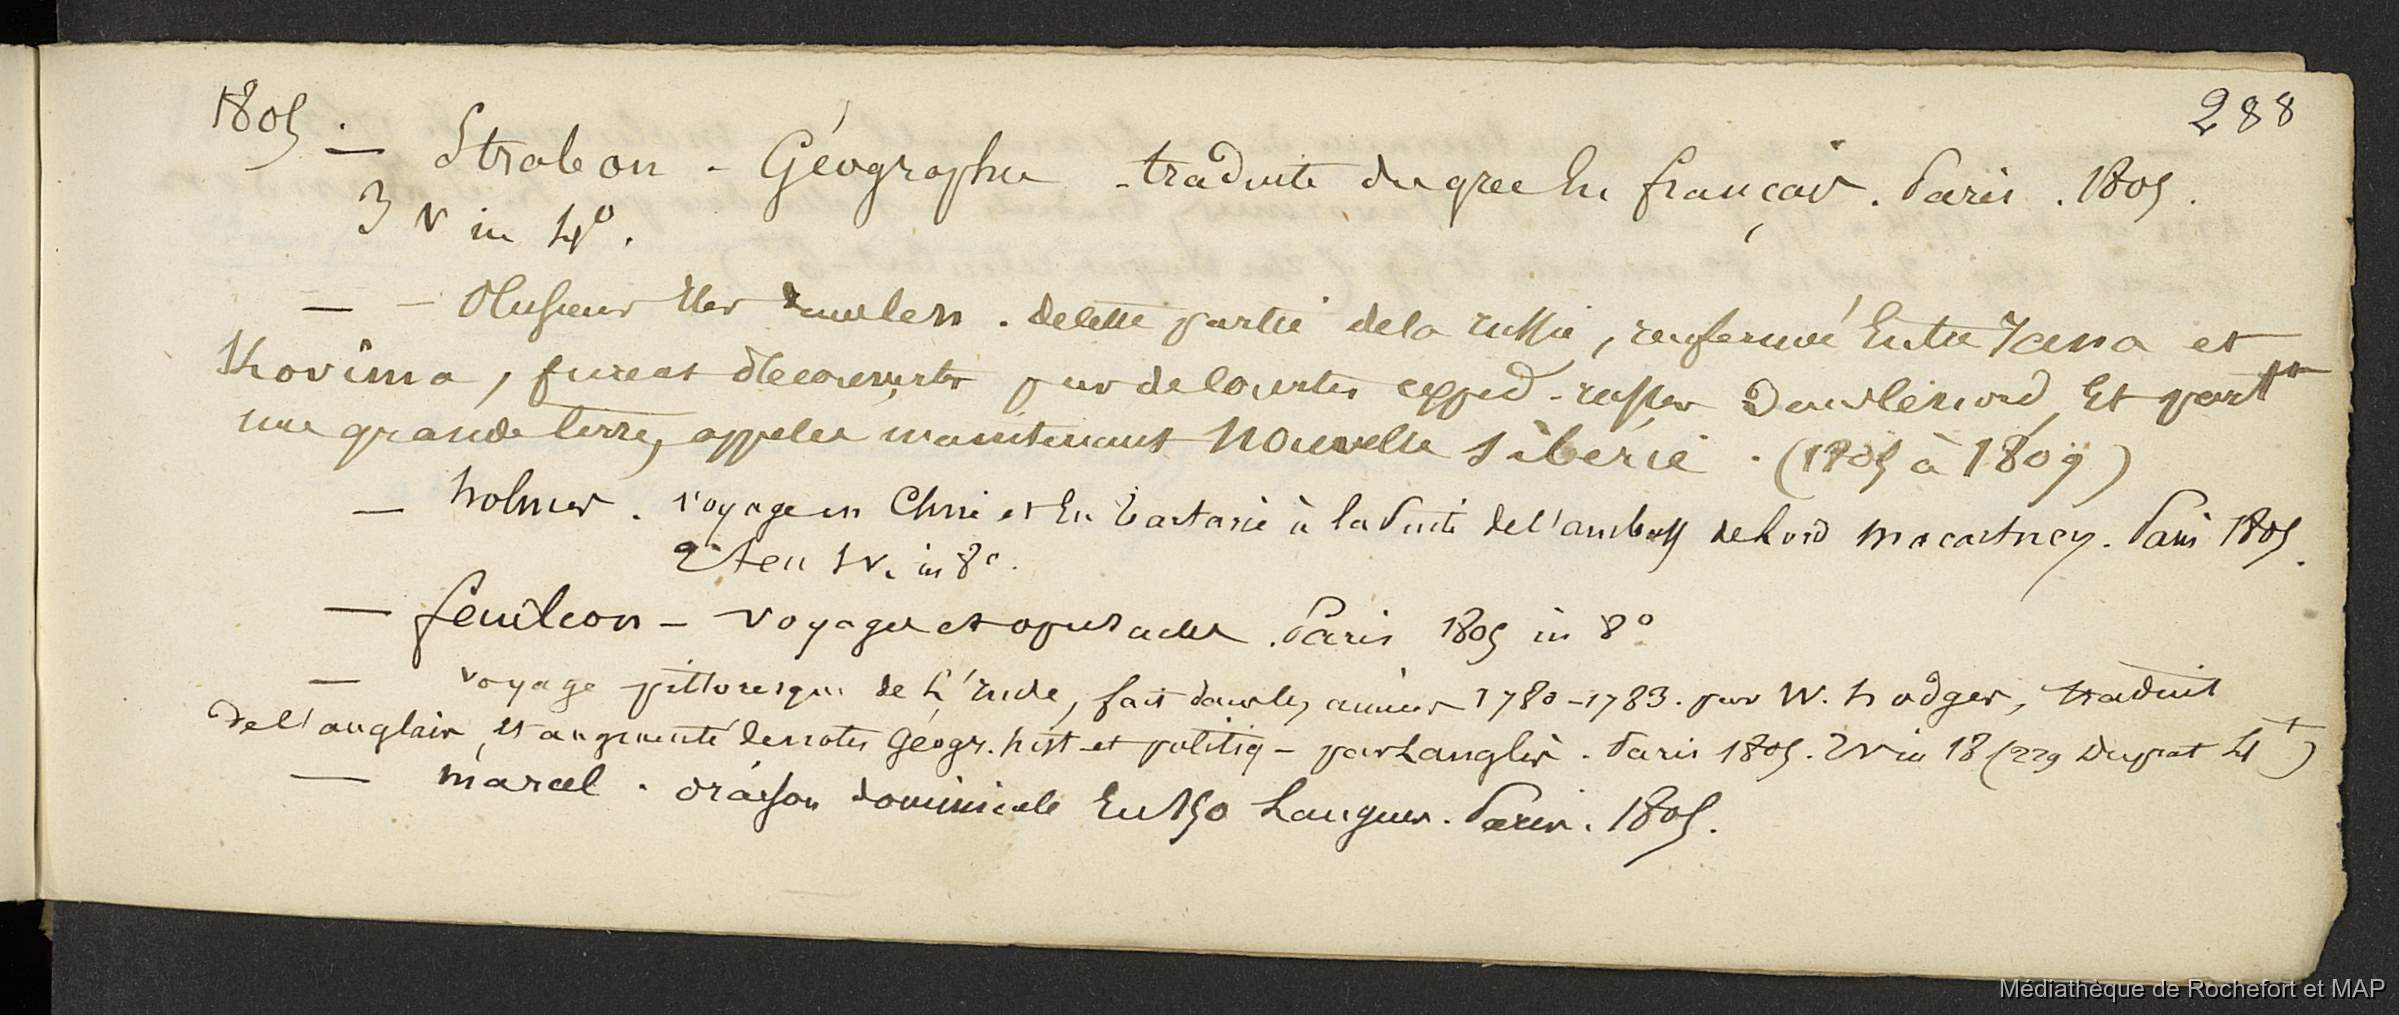 288
1805 . — Strabon . Géographie . traduite du grec En français . Paris . 1805 .
3 v in 4° .
— — Plusieurs Iles . de cette partie de la russie , renfermée Entre Jana et
Kovima , furent découvertes par de courtes exped . russes dans le nord , Et part
une grande terre , appelée maintenant nouvelle sibérie . (1805 à 1809)
— holmes . voyage en Chine et En tartarie à la suite de l'ambass de Lord macartney . Paris 1805 .
2 t en 1 v. in 8° .
— feuilleon — voyages et opuscules . Paris 1805 in 8°
— voyage pittoresque de L'inde , fait dans les années 1780 - 1783 . par W. hodges , traduit
de l'anglais , Et augmenté de notes géogr . hist - et politiq — par Langlès . Paris 1805 . 2 v in 18 (229 Duprat 4 t)
— marcel . oraison dominicale En 150 Langues . Paris . 1805 .
Médiathèque de Rochefort et MAP